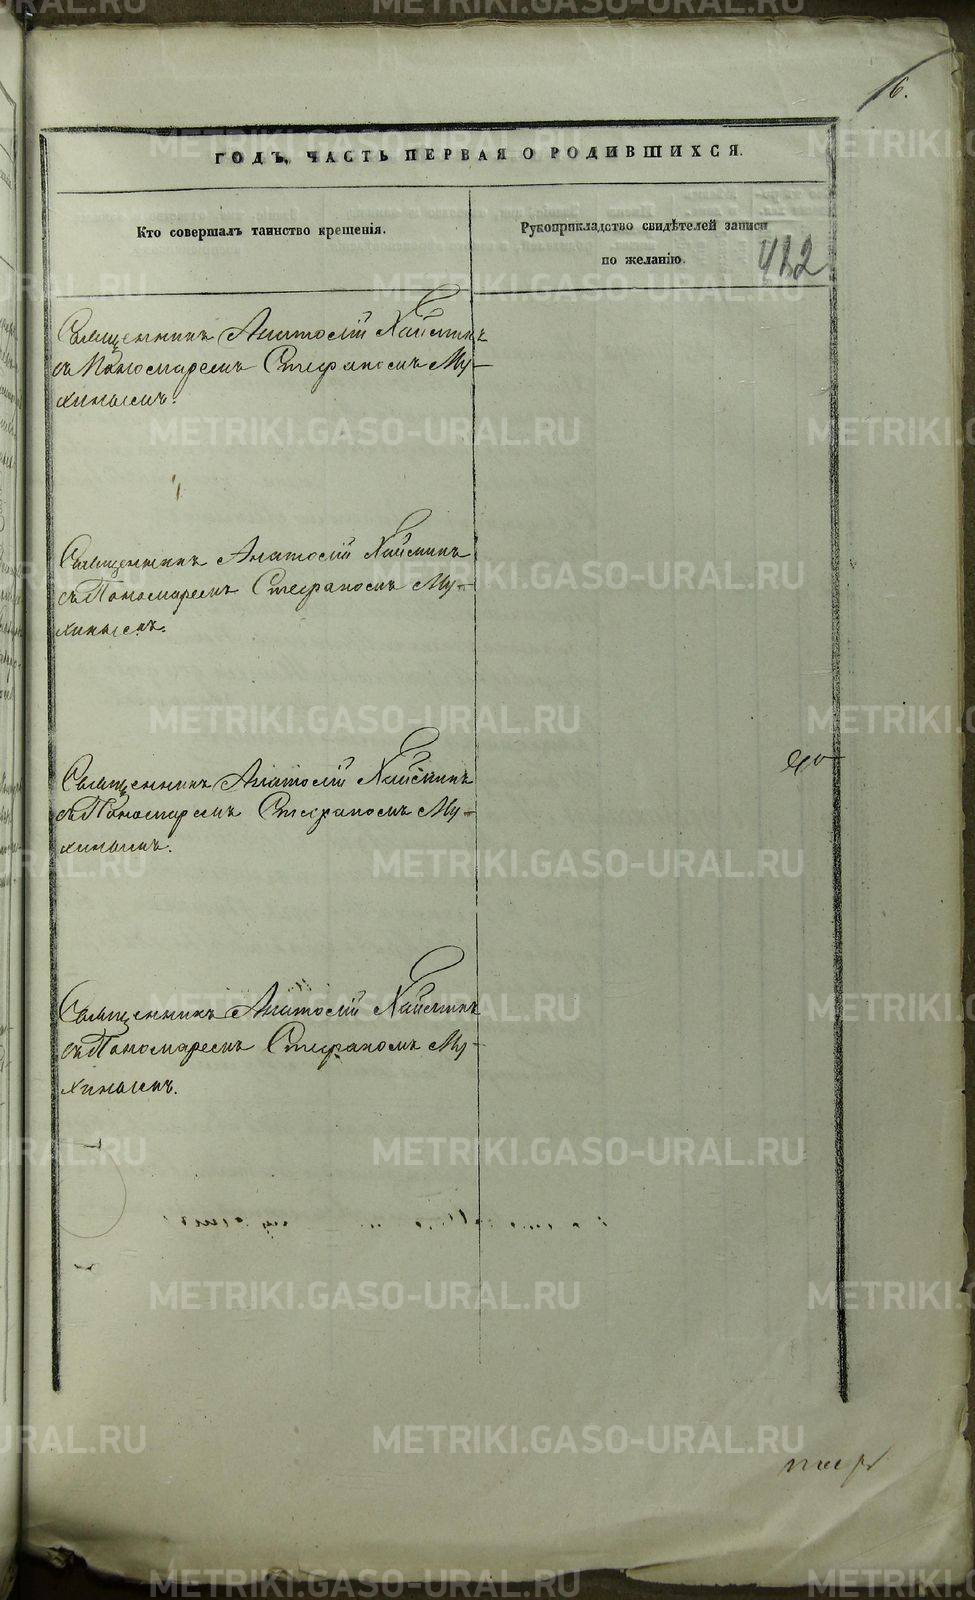 6.
ГОДЪ, ЧАСТЬ ПЕРВАЯ О РОДИВШИХСЯ.
Кто совершалъ таинство крещенія.
Рукоприкладство свидѣтелей записи
по желанію.
412
Священникъ Анатолій Хайминъ
съ Пономаремъ Стефаномъ Му-
хинымъ.
Священникъ Анатолій Хайминъ
съ Пономаремъ Стефаномъ Му-
хинымъ.
Священникъ Анатолій Хайминъ
съ Пономаремъ Стефаномъ Му-
хинымъ.
Священникъ Анатолій Хайминъ
съ Пономаремъ Стефаномъ Му-
хинымъ.
METRIKI.GASO-URAL.RU